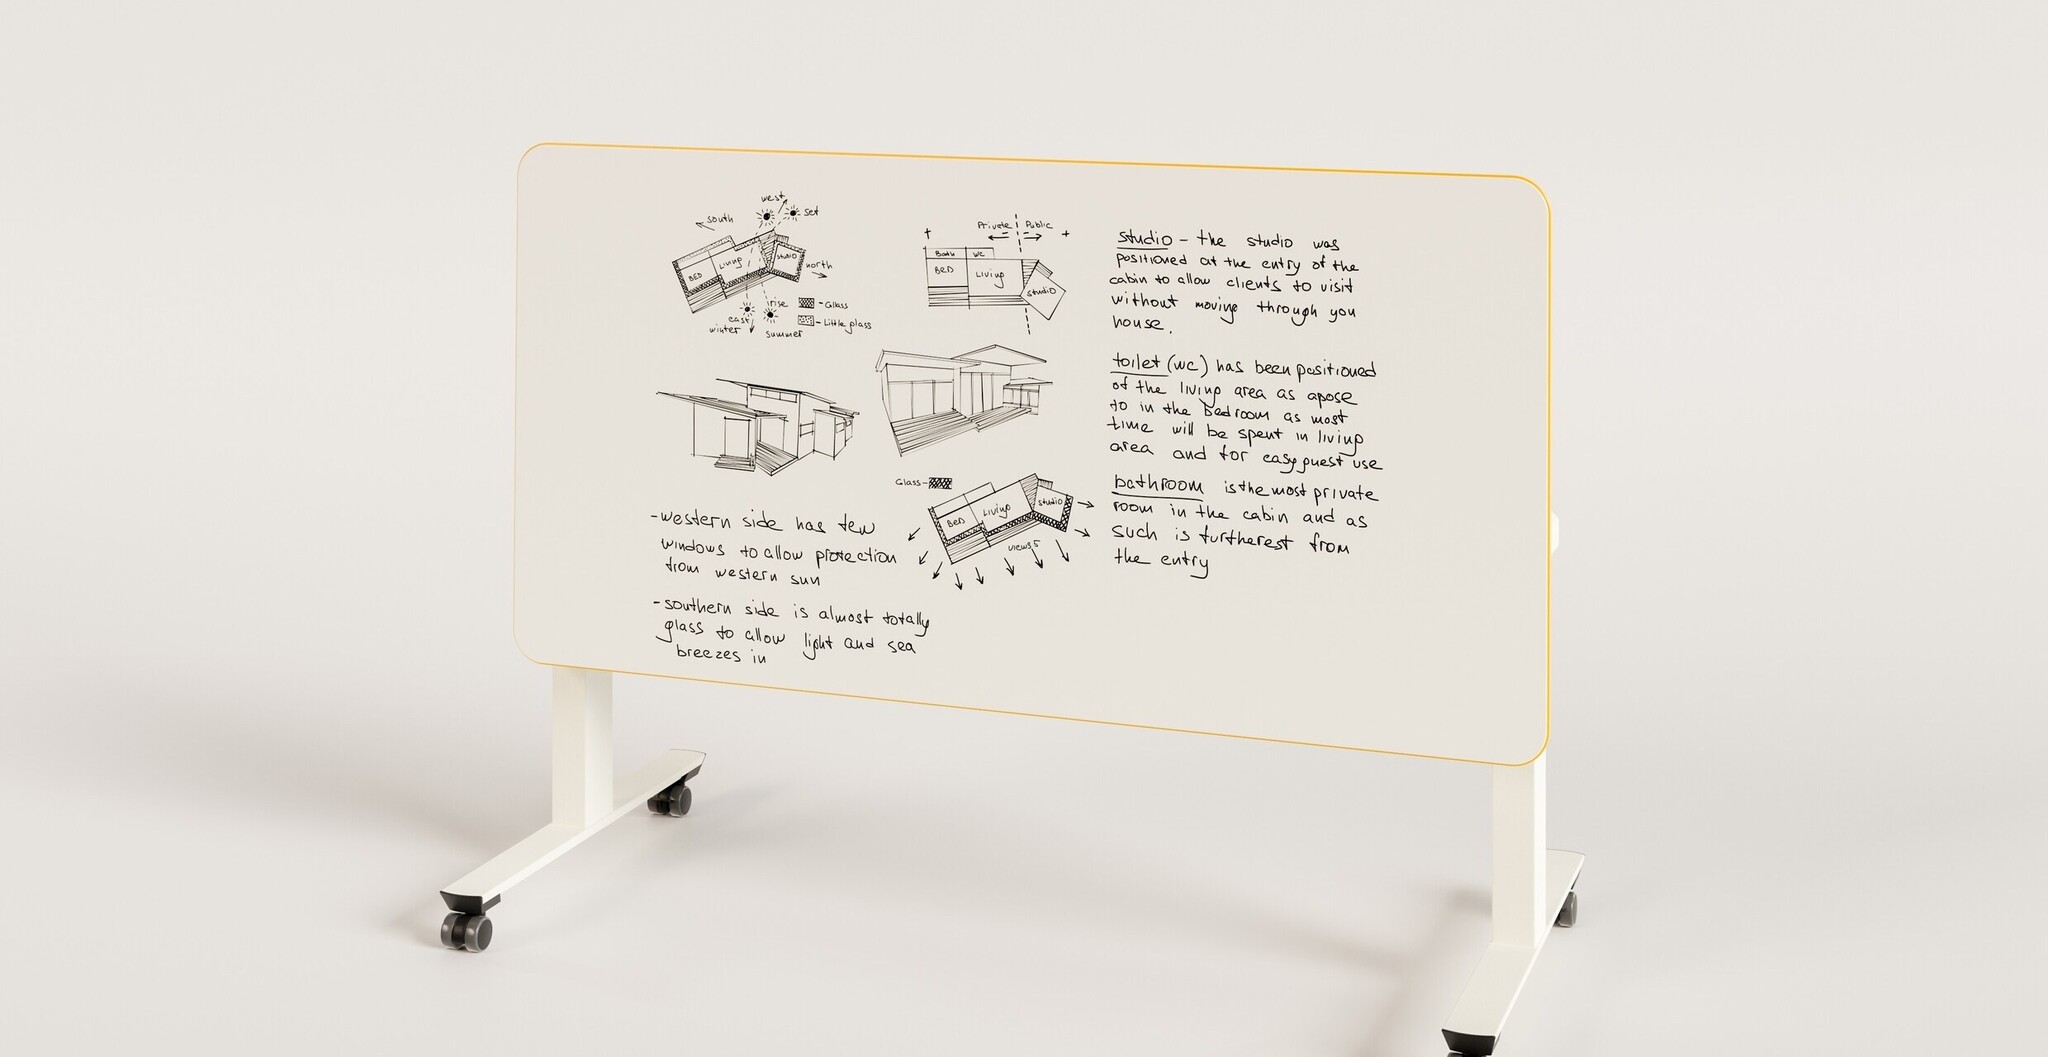 west
set
south
BED
Living
studio
north
rise
- Glass
east
- Little glass
winter
summer
Private
Public
Bath
WC
BED
Living
studio
Glass -
BED
Living
studio
views
- western side has few
windows to allow protection
from western sun
- southern side is almost totally
glass to allow light and sea
breezes in
studio - the studio was
positioned at the entry of the
cabin to allow clients to visit
without moving through you
house.
toilet (wc) has been positioned
of the living area as apose
to in the bedroom as most
time will be spent in living
area and for easy guest use
bathroom is the most private
room in the cabin and as
such is furtherest from
the entry